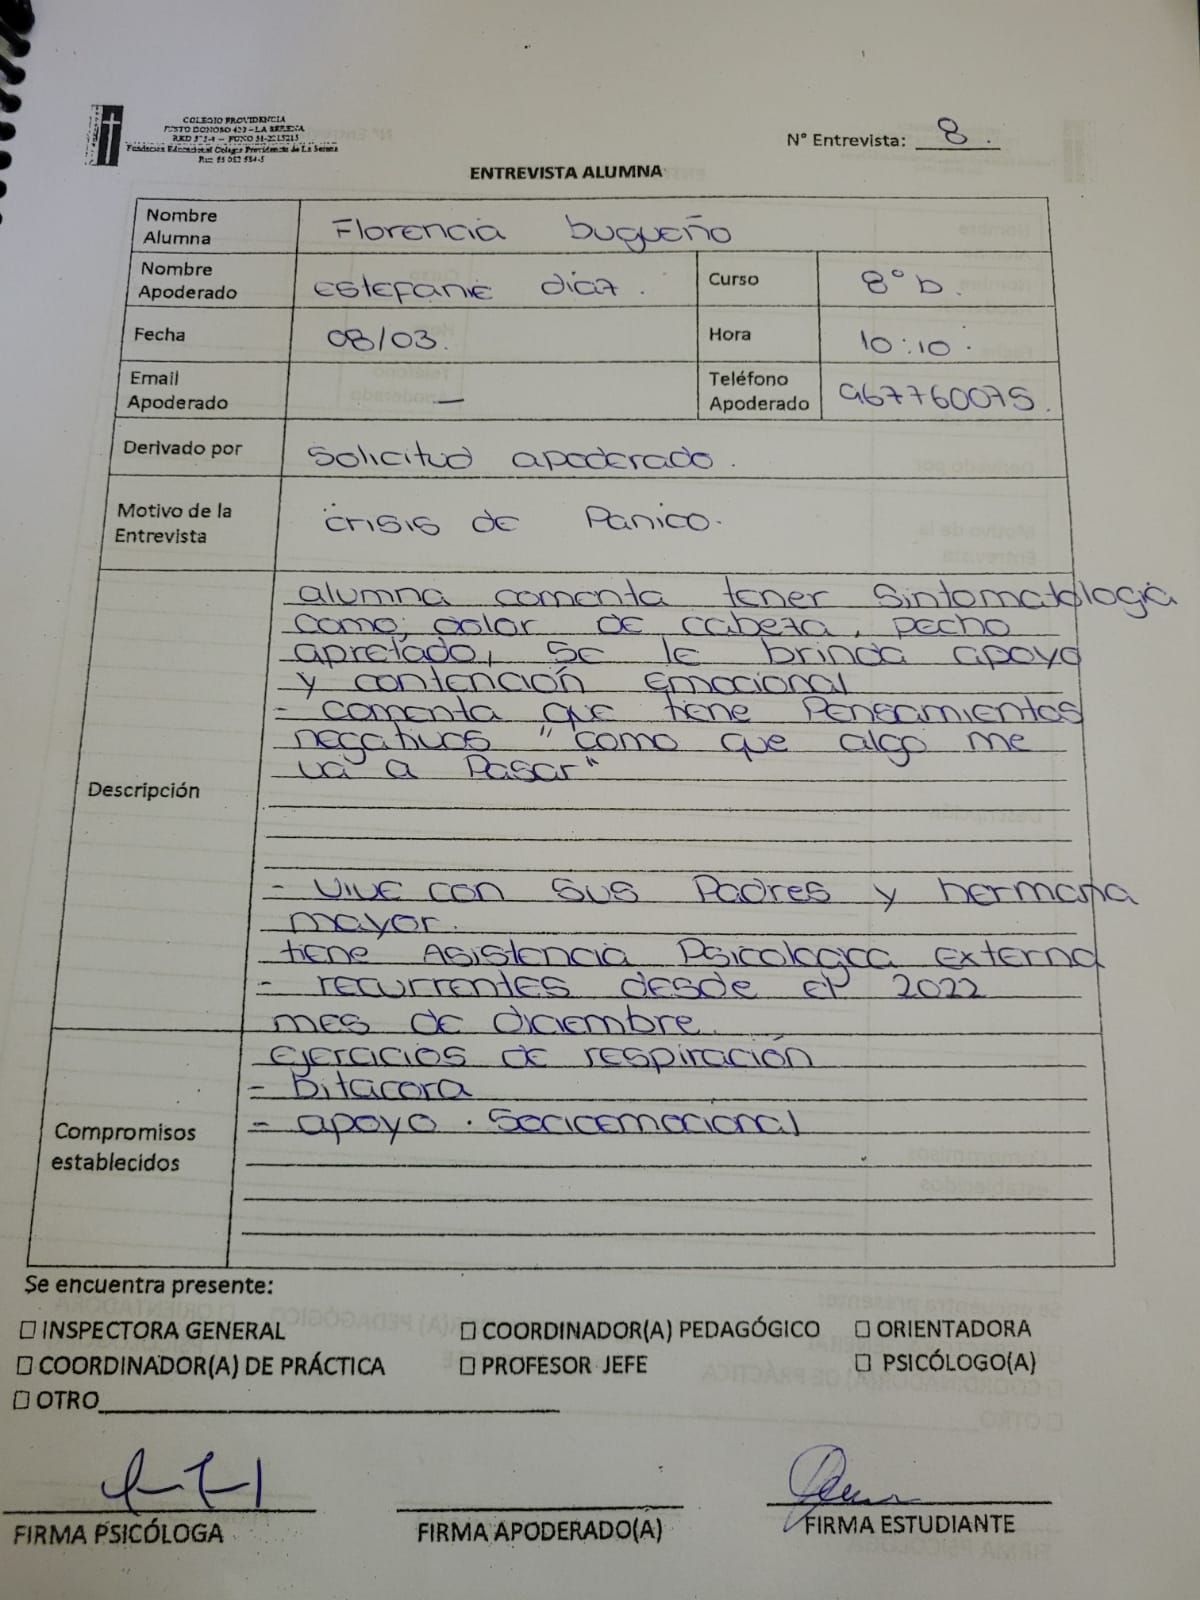 COLEGIO PROVIDENCIA
JUSTO DONOSO 420 – LA SERENA
Fundación Educacional Colegio Providencia de La Serena
N° Entrevista: 8.
ENTREVISTA ALUMNA
Nombre Alumna Florencia bugueño
Nombre Apoderado Estefanie diaz. Curso 8° b.
Fecha 08/03. Hora 10:10.
Email Apoderado — Teléfono Apoderado 967760075.
Derivado por Solicitud apoderado.
Motivo de la Entrevista crisis de Panico.
Descripción
alumna comenta tener Sintomatologia
como; dolor de cabeza, pecho
apretado, se le brinda apoyo
y contención emocional
- comenta que tiene Pensamientos
negativos "como que algo me
va a Pasar"
- vive con sus Padres y hermana
mayor.
tiene Asistencia Psicologica Externa
- recurrentes desde el 2022
mes de diciembre.
Compromisos establecidos
ejercicios de respiración
- Bitácora
- apoyo. Socioemocional
Se encuentra presente:
☐ INSPECTORA GENERAL ☐ COORDINADOR(A) PEDAGÓGICO ☐ ORIENTADORA
☐ COORDINADOR(A) DE PRÁCTICA ☐ PROFESOR JEFE ☐ PSICÓLOGO(A)
☐ OTRO
FIRMA PSICÓLOGA FIRMA APODERADO(A) FIRMA ESTUDIANTE